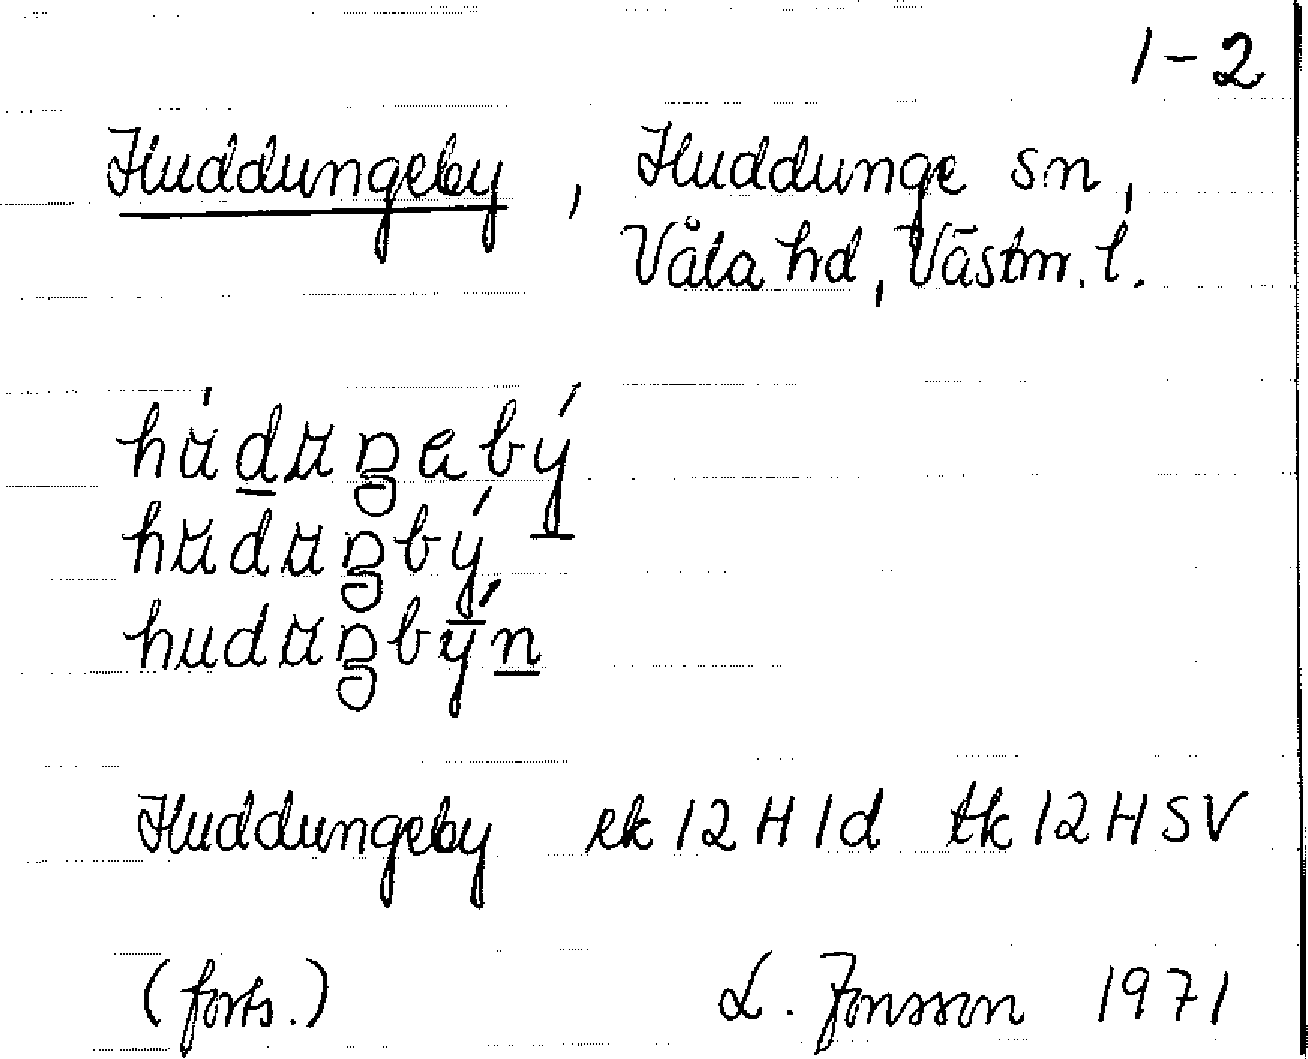 1-2
Huddungeby, Huddunge sn,
Våla hd, Västm. l.
Huddungeby ek 12 H 1d tk 12 H SV
(forts.) L. Jonsson 1971